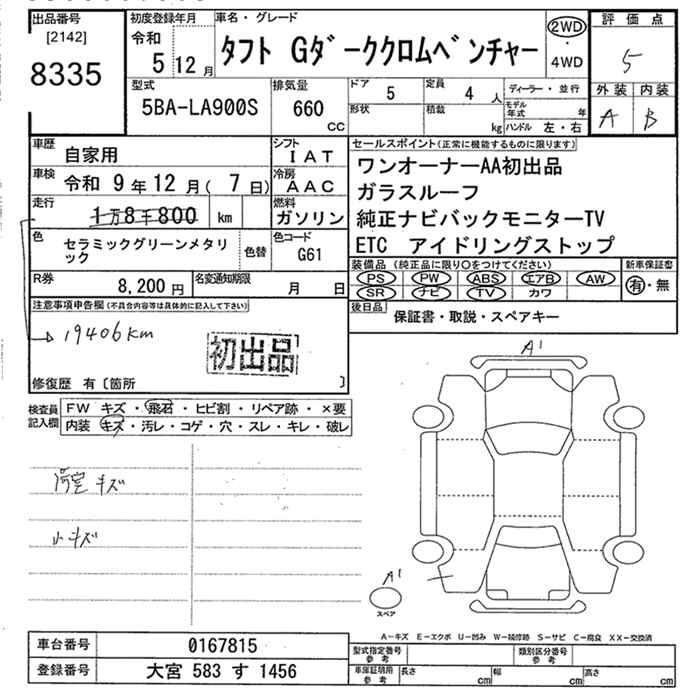 出品番号
[2142]
8335
初度登録年月
令和
5 12 月
車名・グレード
タフト Gダーククロムベンチャー
2WD
・
4WD
評価点
5
外装 内装
A B
型式
5BA-LA900S
排気量
660
cc
ドア
5
形状
定員
4 人
積載
kg
ディーラー・並行
モデル年式 年
ハンドル 左・右
車歴
自家用
シフト
IAT
車検
令和 9年 12月( 7日)
冷房
AAC
走行
1万8千800 km
燃料
ガソリン
色
セラミックグリーンメタリック
色替
色コード
G61
R券
8,200 円
名変通知期限
月 日
セールスポイント(正常に機能するものに限ります)
ワンオーナーAA初出品
ガラスルーフ
純正ナビバックモニターTV
ETC アイドリングストップ
装備品(純正品に限り○をつけてください)
PS PW ABS エアB AW
SR ナビ TV カワ
新車保証書
有・無
後日品
保証書・取説・スペアキー
注意事項申告欄(不具合内容等は具体的に記入して下さい)
19406km
初出品
修復歴 有〔箇所 〕
検査員記入欄
FW キズ・飛石・ヒビ割・リペア跡・×要
内装 キズ・汚レ・コゲ・穴・スレ・キレ・破レ
荷室キズ
小キズ
A1
A1
スペア
A-キズ E-エクボ U-凹み W-補修跡 S-サビ C-腐食 XX-交換済
車台番号
0167815
登録番号
大宮 583 す 1456
型式指定番号
参考
類別区分番号
参考
車庫証明用
参考
長さ cm
幅 cm
高さ cm